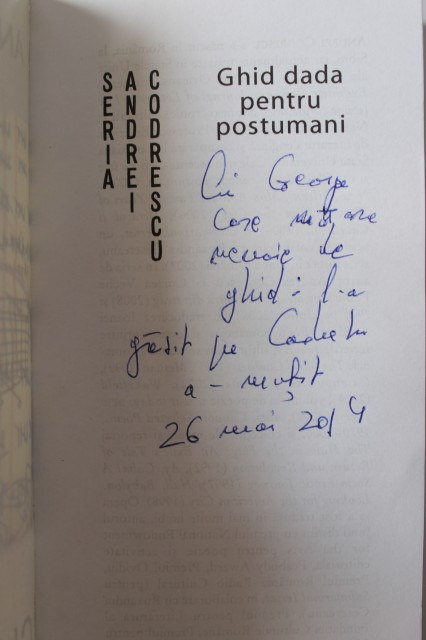 SERIA
ANDREI
CODRESCU
Ghid dada
pentru
postumani
George
care nu are
nevoie de
ghid: l-a
găsit pe
a-
26 mai 2014